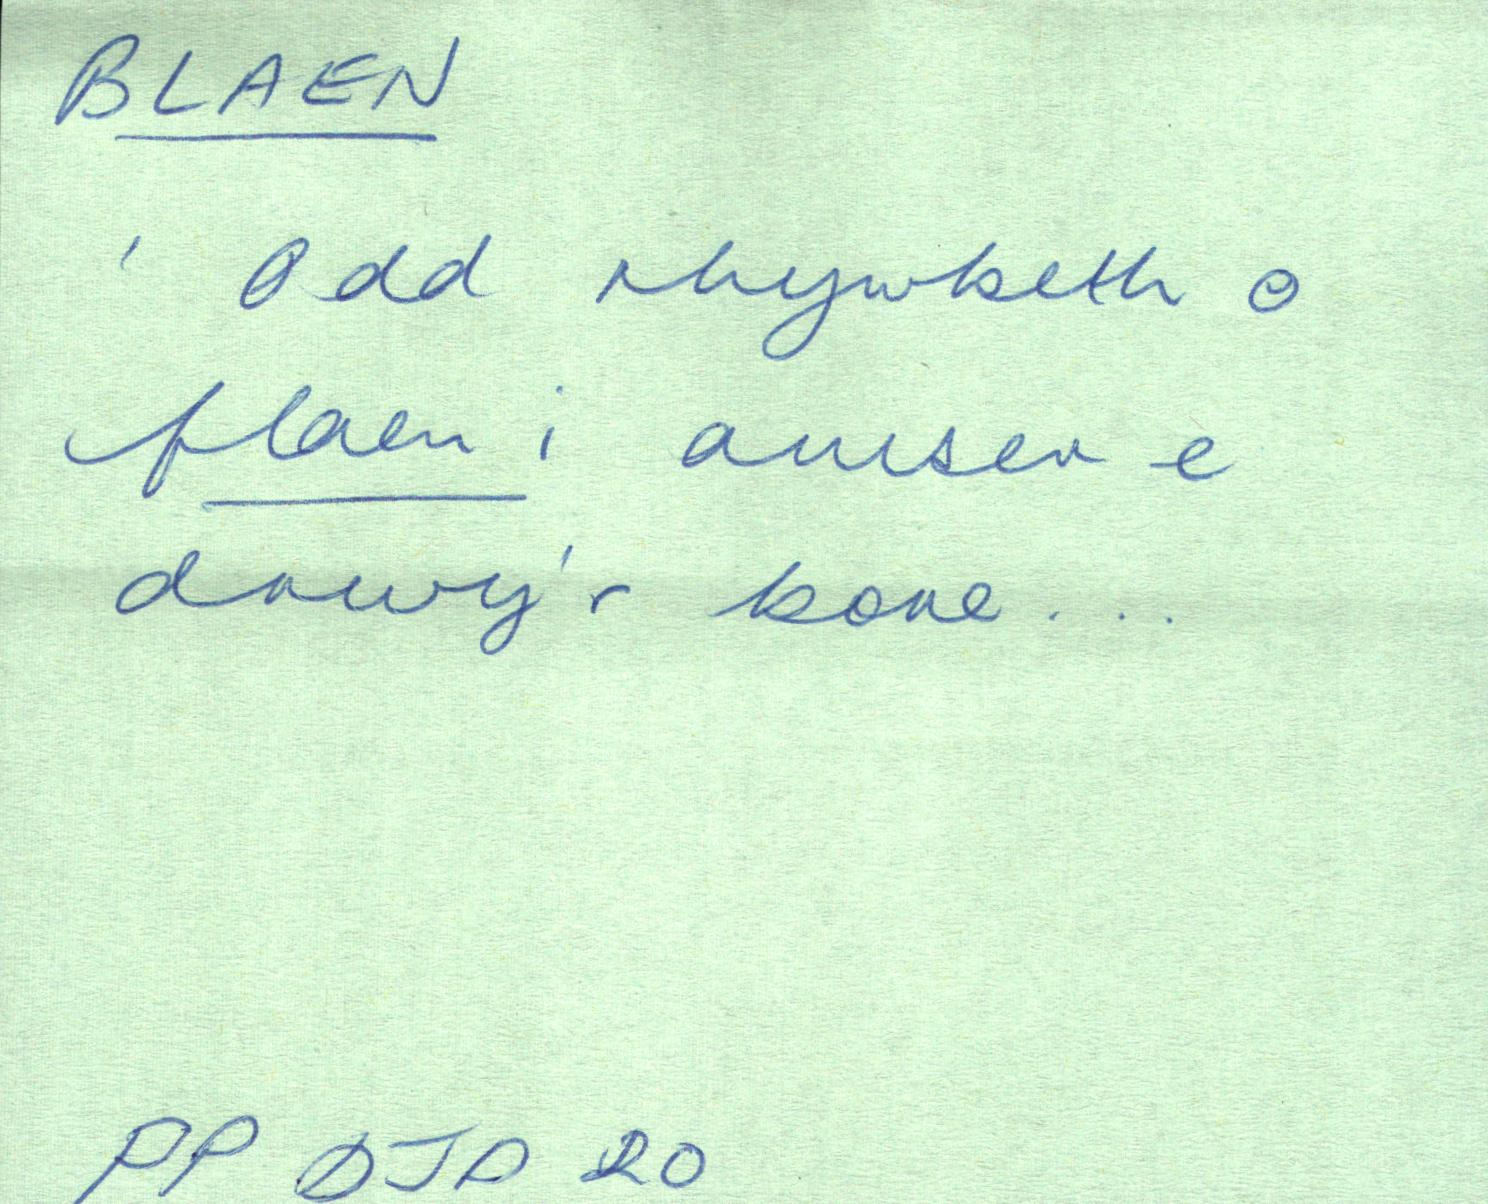 BLAEN
' Odd rhywbeth o
flaen i amser e
drwy'r bore ...
PP DJP 20